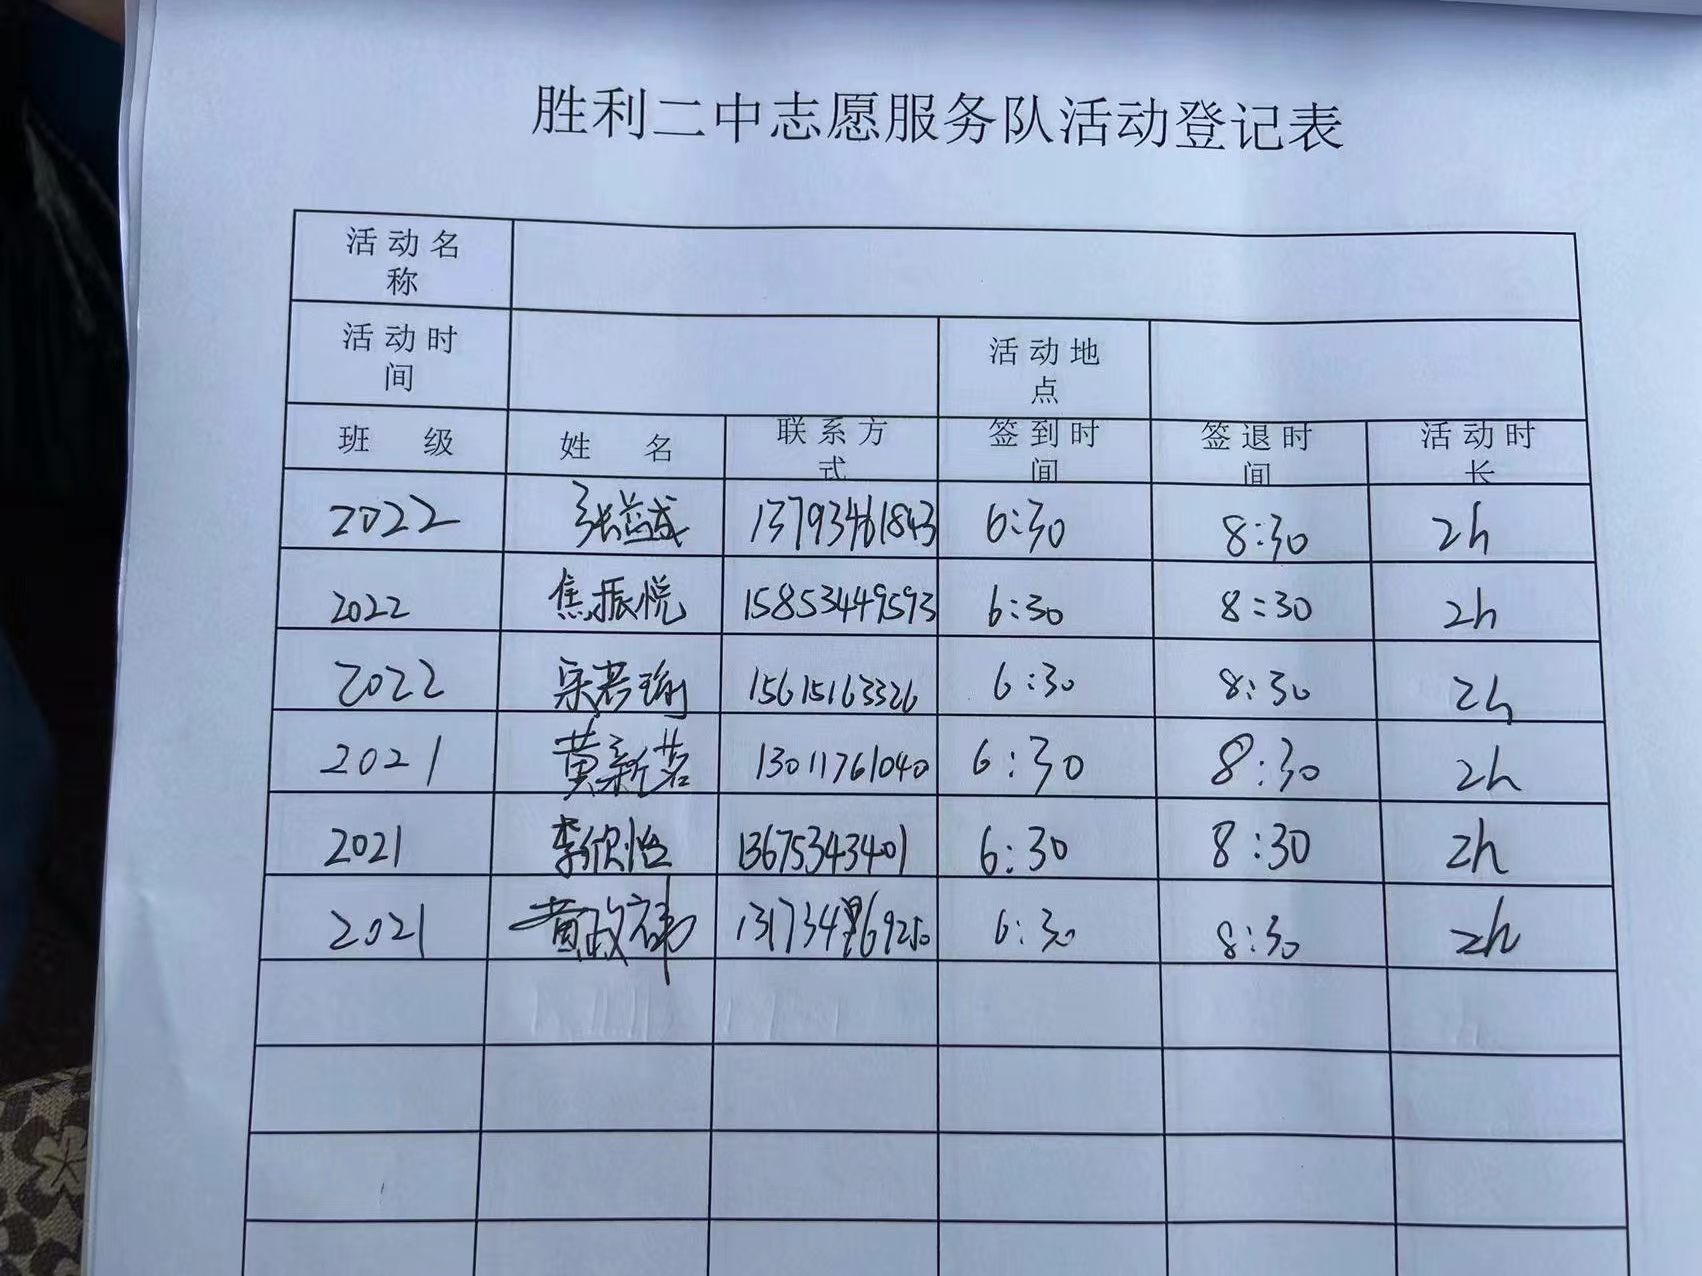 胜利二中志愿服务队活动登记表
活动名
称
活动时
间
活动地
点
班 级 姓 名 联系方
式 签到时
间 签退时
间 活动时
长
2022 张益诚 13793461843 6:30 8:30 2h
2022 焦振悦 15853449593 6:30 8:30 2h
2022 宋若瑜 15615163326 6:30 8:30 2h
2021 黄新茗 13011761040 6:30 8:30 2h
2021 李欣怡 13675343401 6:30 8:30 2h
2021 黄政 6:30 8:30 2h